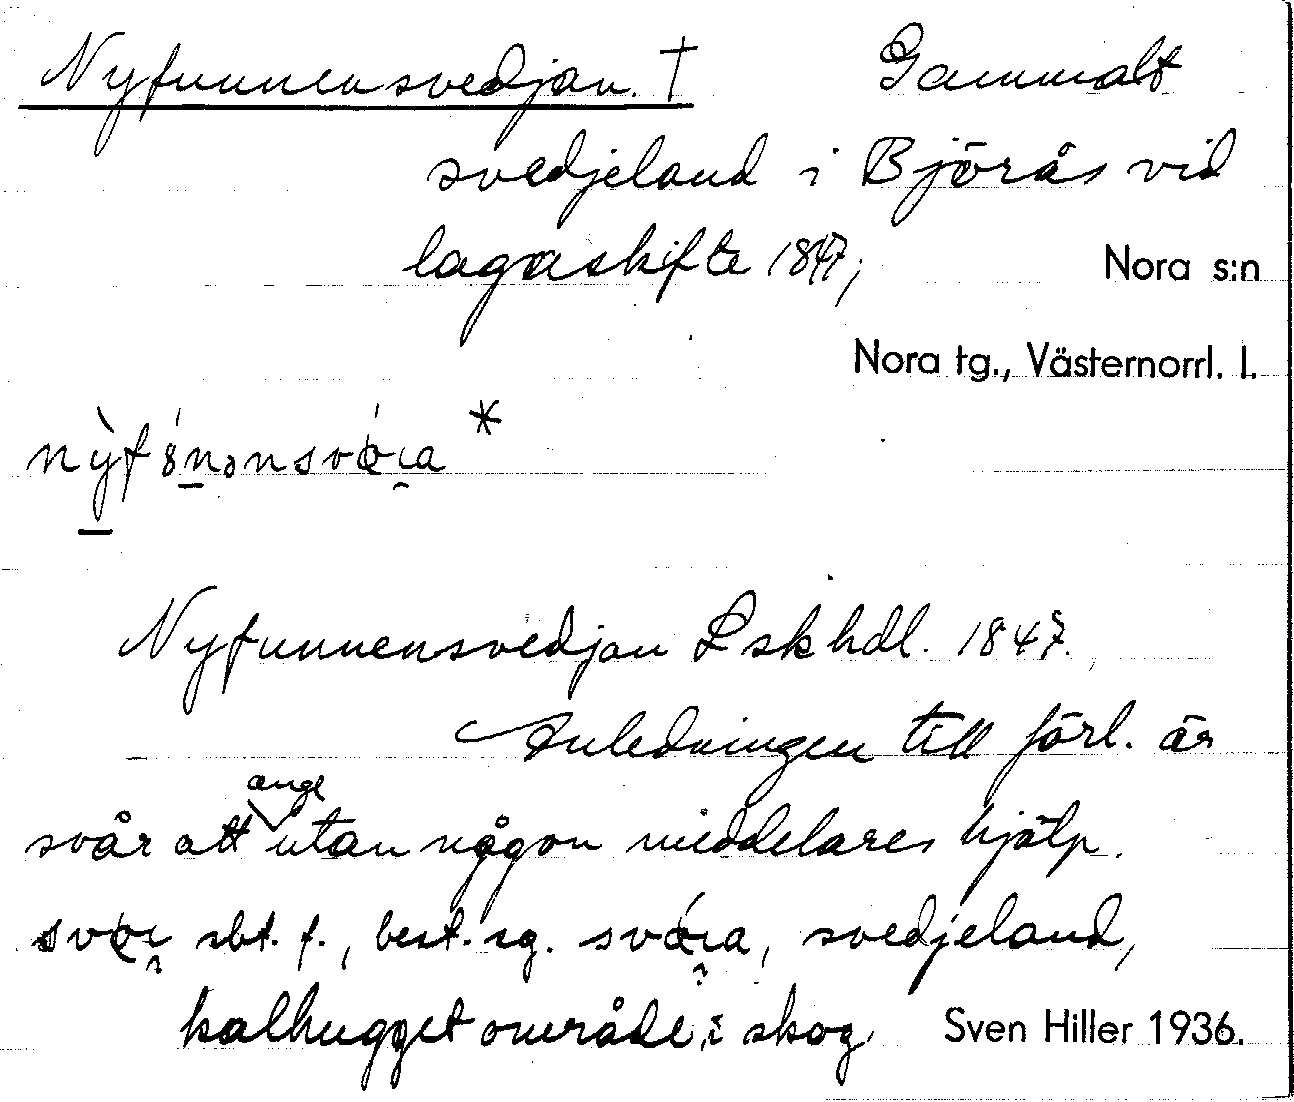 Nyfunnensvedjan. † Gammalt
svedjeland i Björås vid
lagaskifte 1847;
Nora s:n
Nora tg., Västernorrl. l.
Nyfunnensvedjan Lskhdl. 1847.
Anledningen till förl. är
svår att ange utan någon meddelares hjälp.
sbt. f., best. sg. svedjeland,
kalhugget område i skog
Sven Hiller 1936.